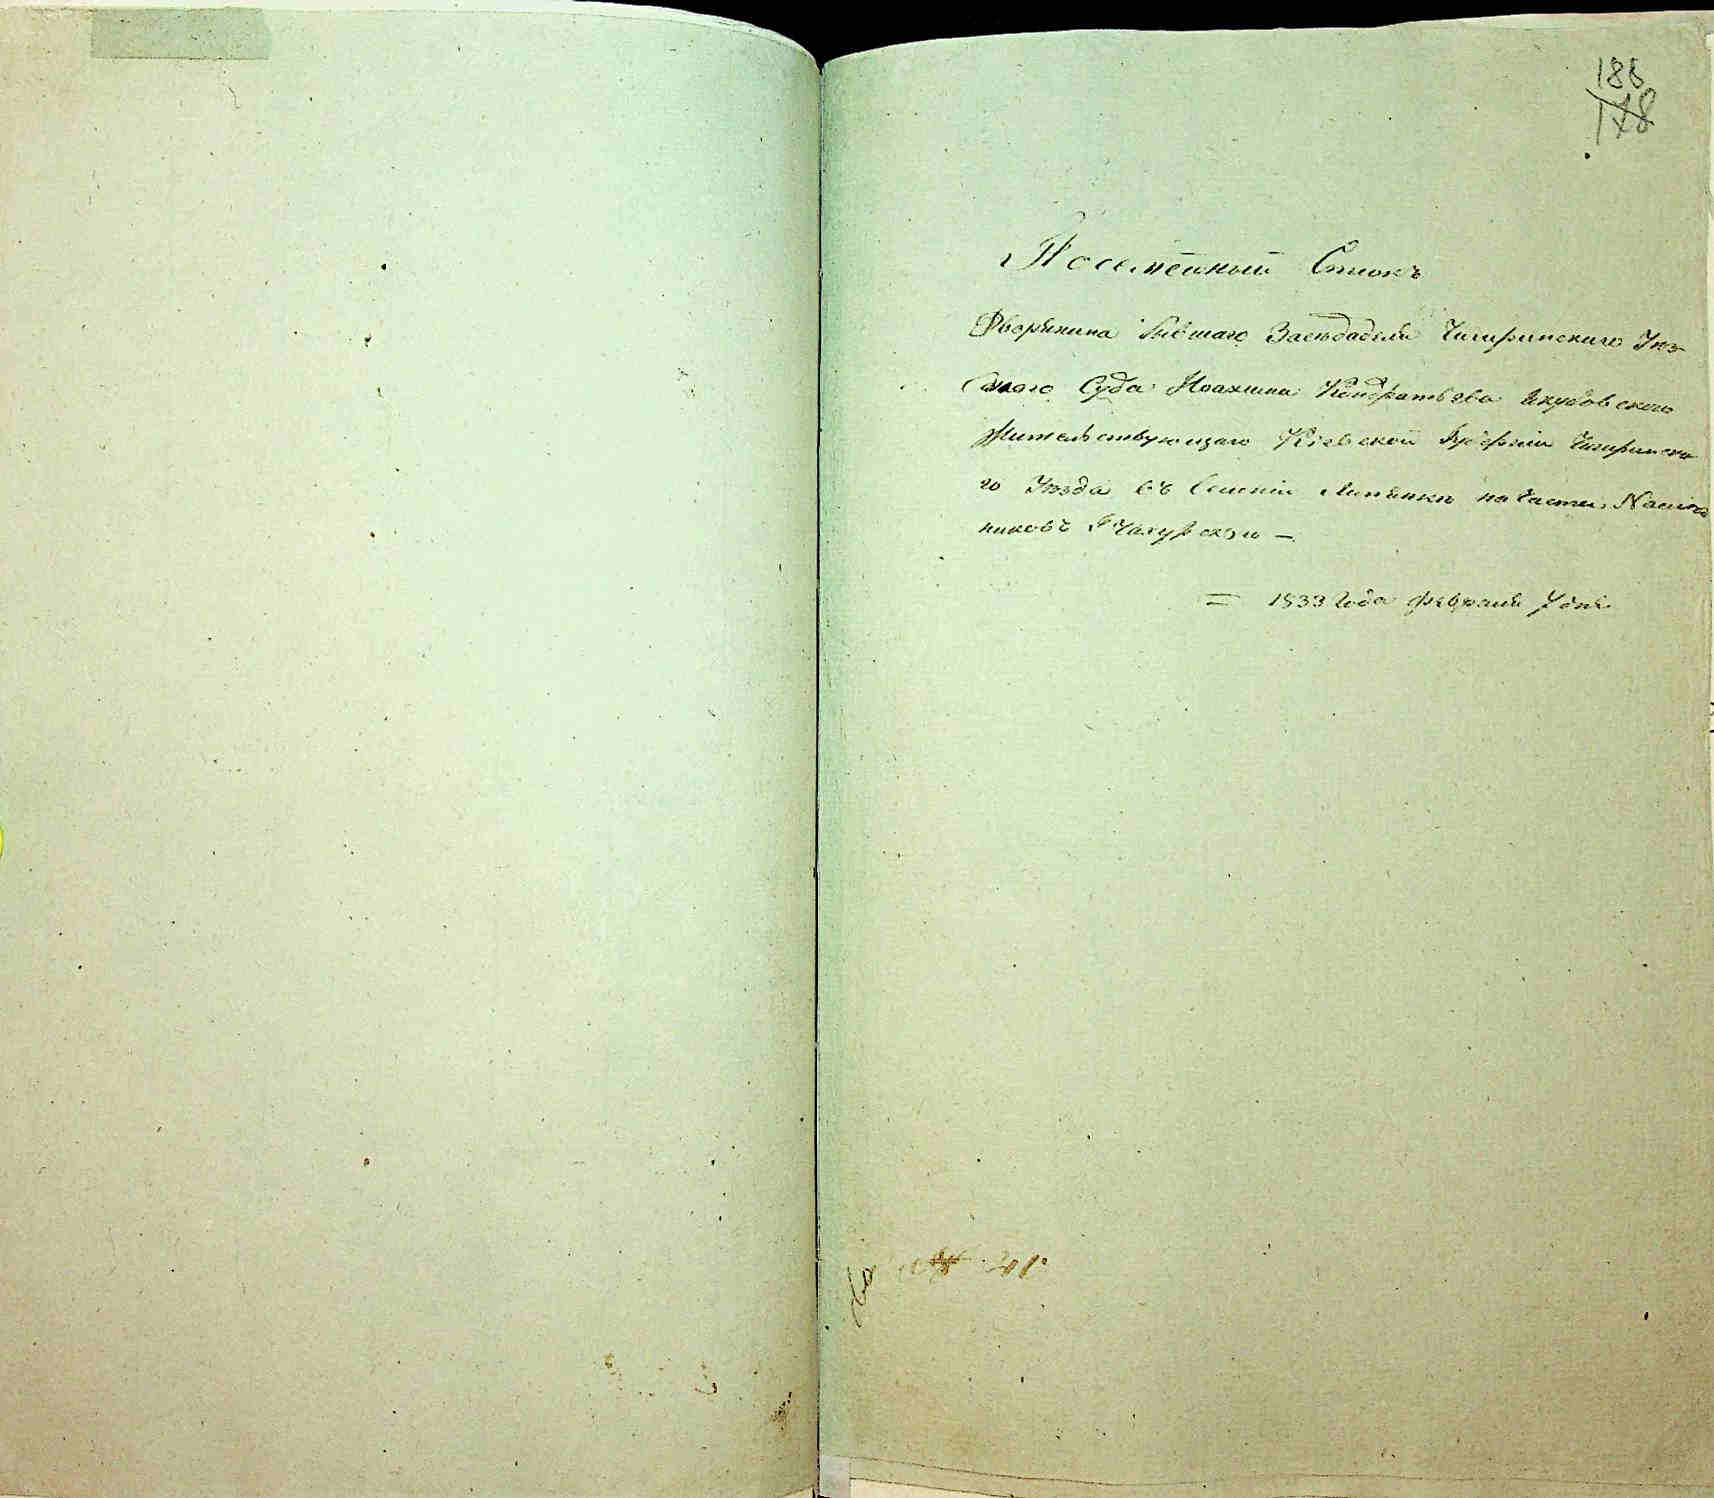 186
178
Посемейный Списокъ
Дворянина бывшаго Засѣдателя Чигиринскаго Уѣз-
днаго Суда Иоахима Кондратьева Якубовского
Жительствующаго Кіевской Губерніи Чигиринска-
го Уѣзда въ Селеніи Липянкѣ на части Наслѣд-
никовъ
= 1833 Года Февраля 7 дня